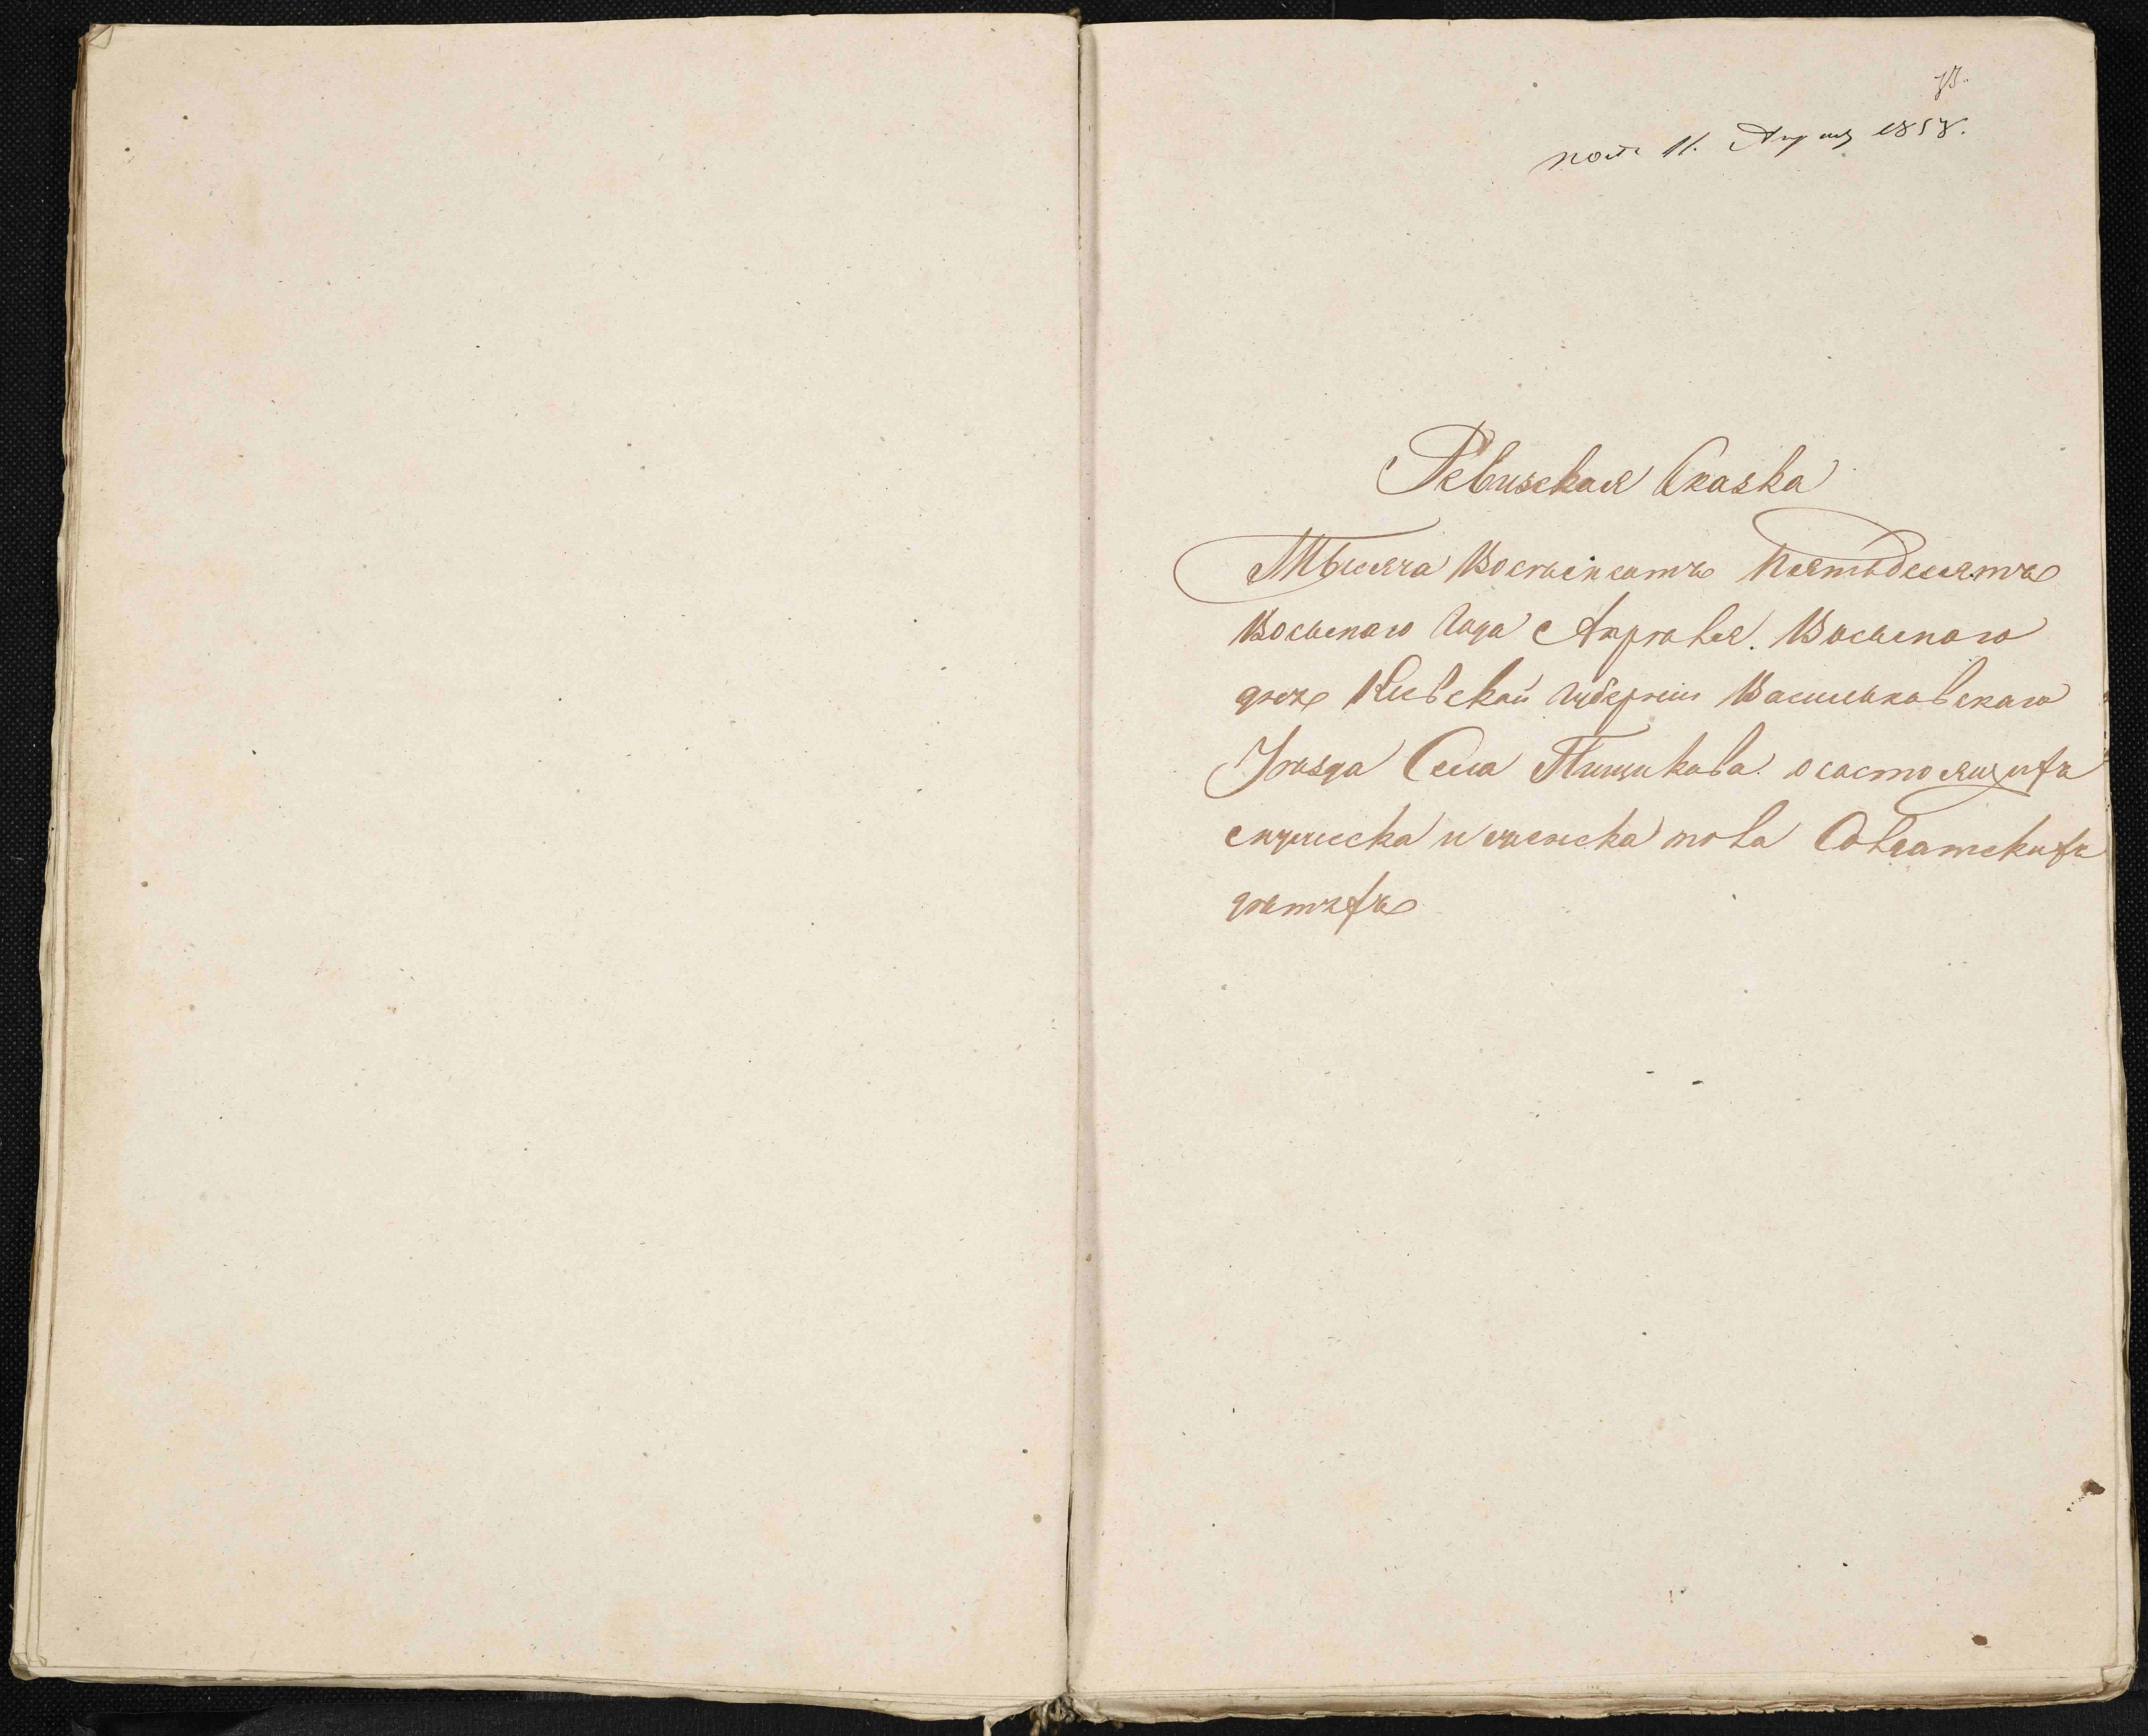 11. 1858.
Ревизская Сказка
Тысяча Восемсотъ Пятьдесятъ
Восьмаго Года Апрѣля. Восьмаго
дня Кіевской Губерніи Васильковскаго
Уѣзда Села Пищикова о состоящихъ
мужеска и женска пола
дѣтяхъ